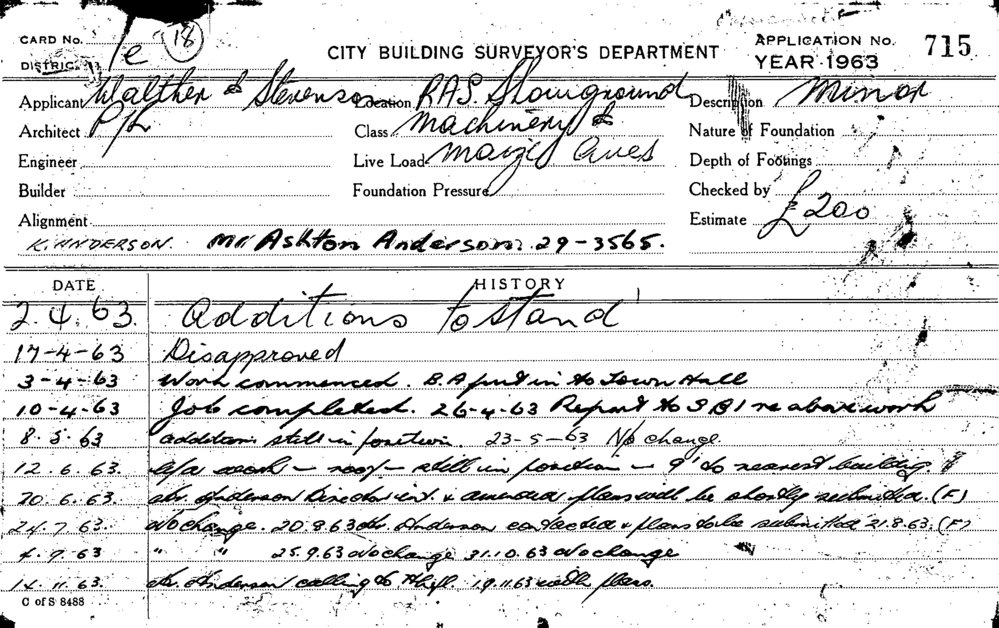 CARD No. 18
CITY BUILDING SURVEYOR'S DEPARTMENT
APPLICATION No. 715
DISTRICT 1e
YEAR 1963
Applicant Walther & Stevenson Location RAS. Showground Description Minor
Architect P/L Class Machinery & Nature of Foundation
Engineer Live Load Maize Aves Depth of Footings
Builder Foundation Pressure Checked by
Alignment Estimate £200
K. ANDERSON. Mr Ashton Anderson. 29-3565.
DATE HISTORY
2.4.63. Additions to Stand
17-4-63 Disapproved
3-4-63 Work commenced. B.A put in to Town Hall
10-4-63 Job completed. 26-4-63 Report to SBI re above work
8.5.63 Additions still in position. 23-5-63 No change
12.6.63. work - roof - still in position - 9' to nearest building
20.6.63. Mr. Anderson Director int. & amended plans will be shortly submitted. (F)
24.7.63. No change. 20.8.63 Mr. Anderson contacted & plans to be submitted 21.8.63. (F)
4.9.63 " " 25.9.63 No change 31.10.63 No change
14.11.63. Mr. Anderson calling to 19.11.63 with plans.
C of S 8488